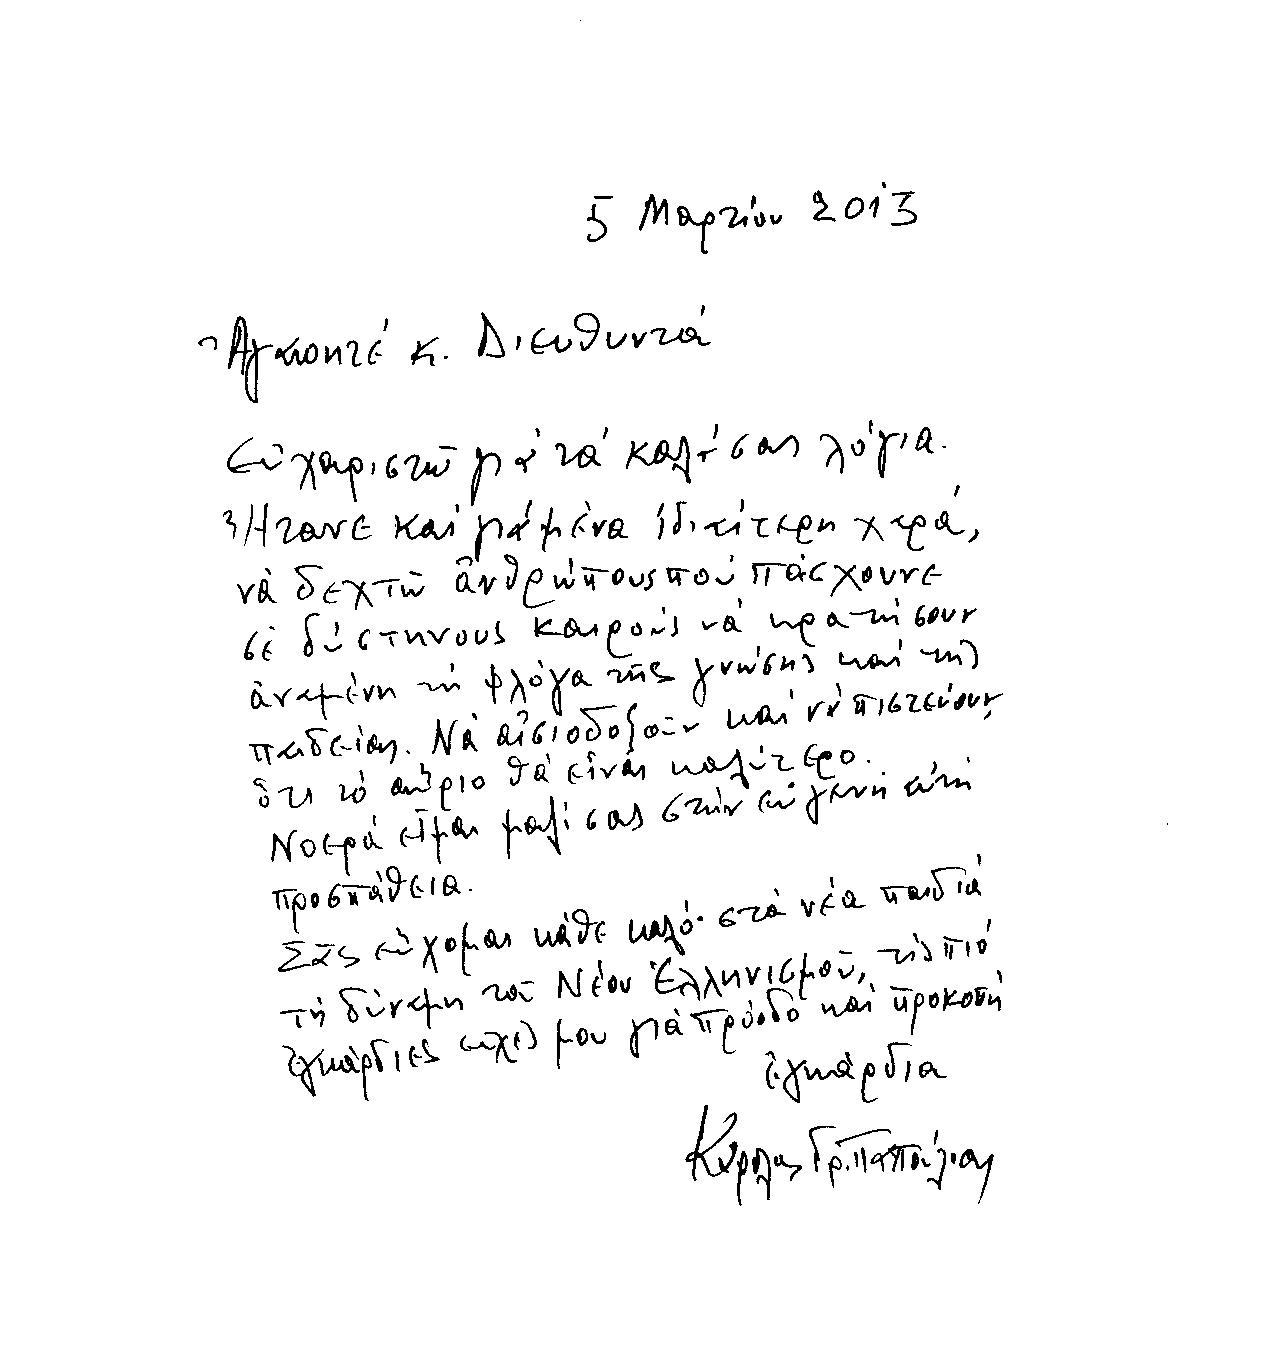 5 Μαρτίου 2013
Ἀγαπητέ κ. Διευθυντά
Εὐχαριστῶ γιὰ τά καλά σας λόγια.
Ἤτανε καί γιά μένα ἰδιαίτερη χαρά,
νὰ δεχτῶ ἀνθρώπους πού πάσχουνε
σέ δύστηνους καιρούς νά κρατήσουν
ἀναμένη τή φλόγα τῆς γνώσης καί τῆς
παιδείας. Νὰ αἰσιοδοξοῦν καί νά πιστεύουν,
ὅτι τό αὔριο θά εἶναι καλύτερο.
Νοερά εἶμαι μαζί σας στήν εὐγενή αὐτή
προσπάθεια.
Σᾶς εὔχομαι κάθε καλό· στά νέα παιδιά
τή δύναμη τοῦ Νέου Ἑλληνισμοῦ, τίς πιό
ἐγκάρδιες εὐχές μου γιά πρόοδο καί προκοπή
ἐγκάρδια
Κάρολος Γρ. Παπούλιας